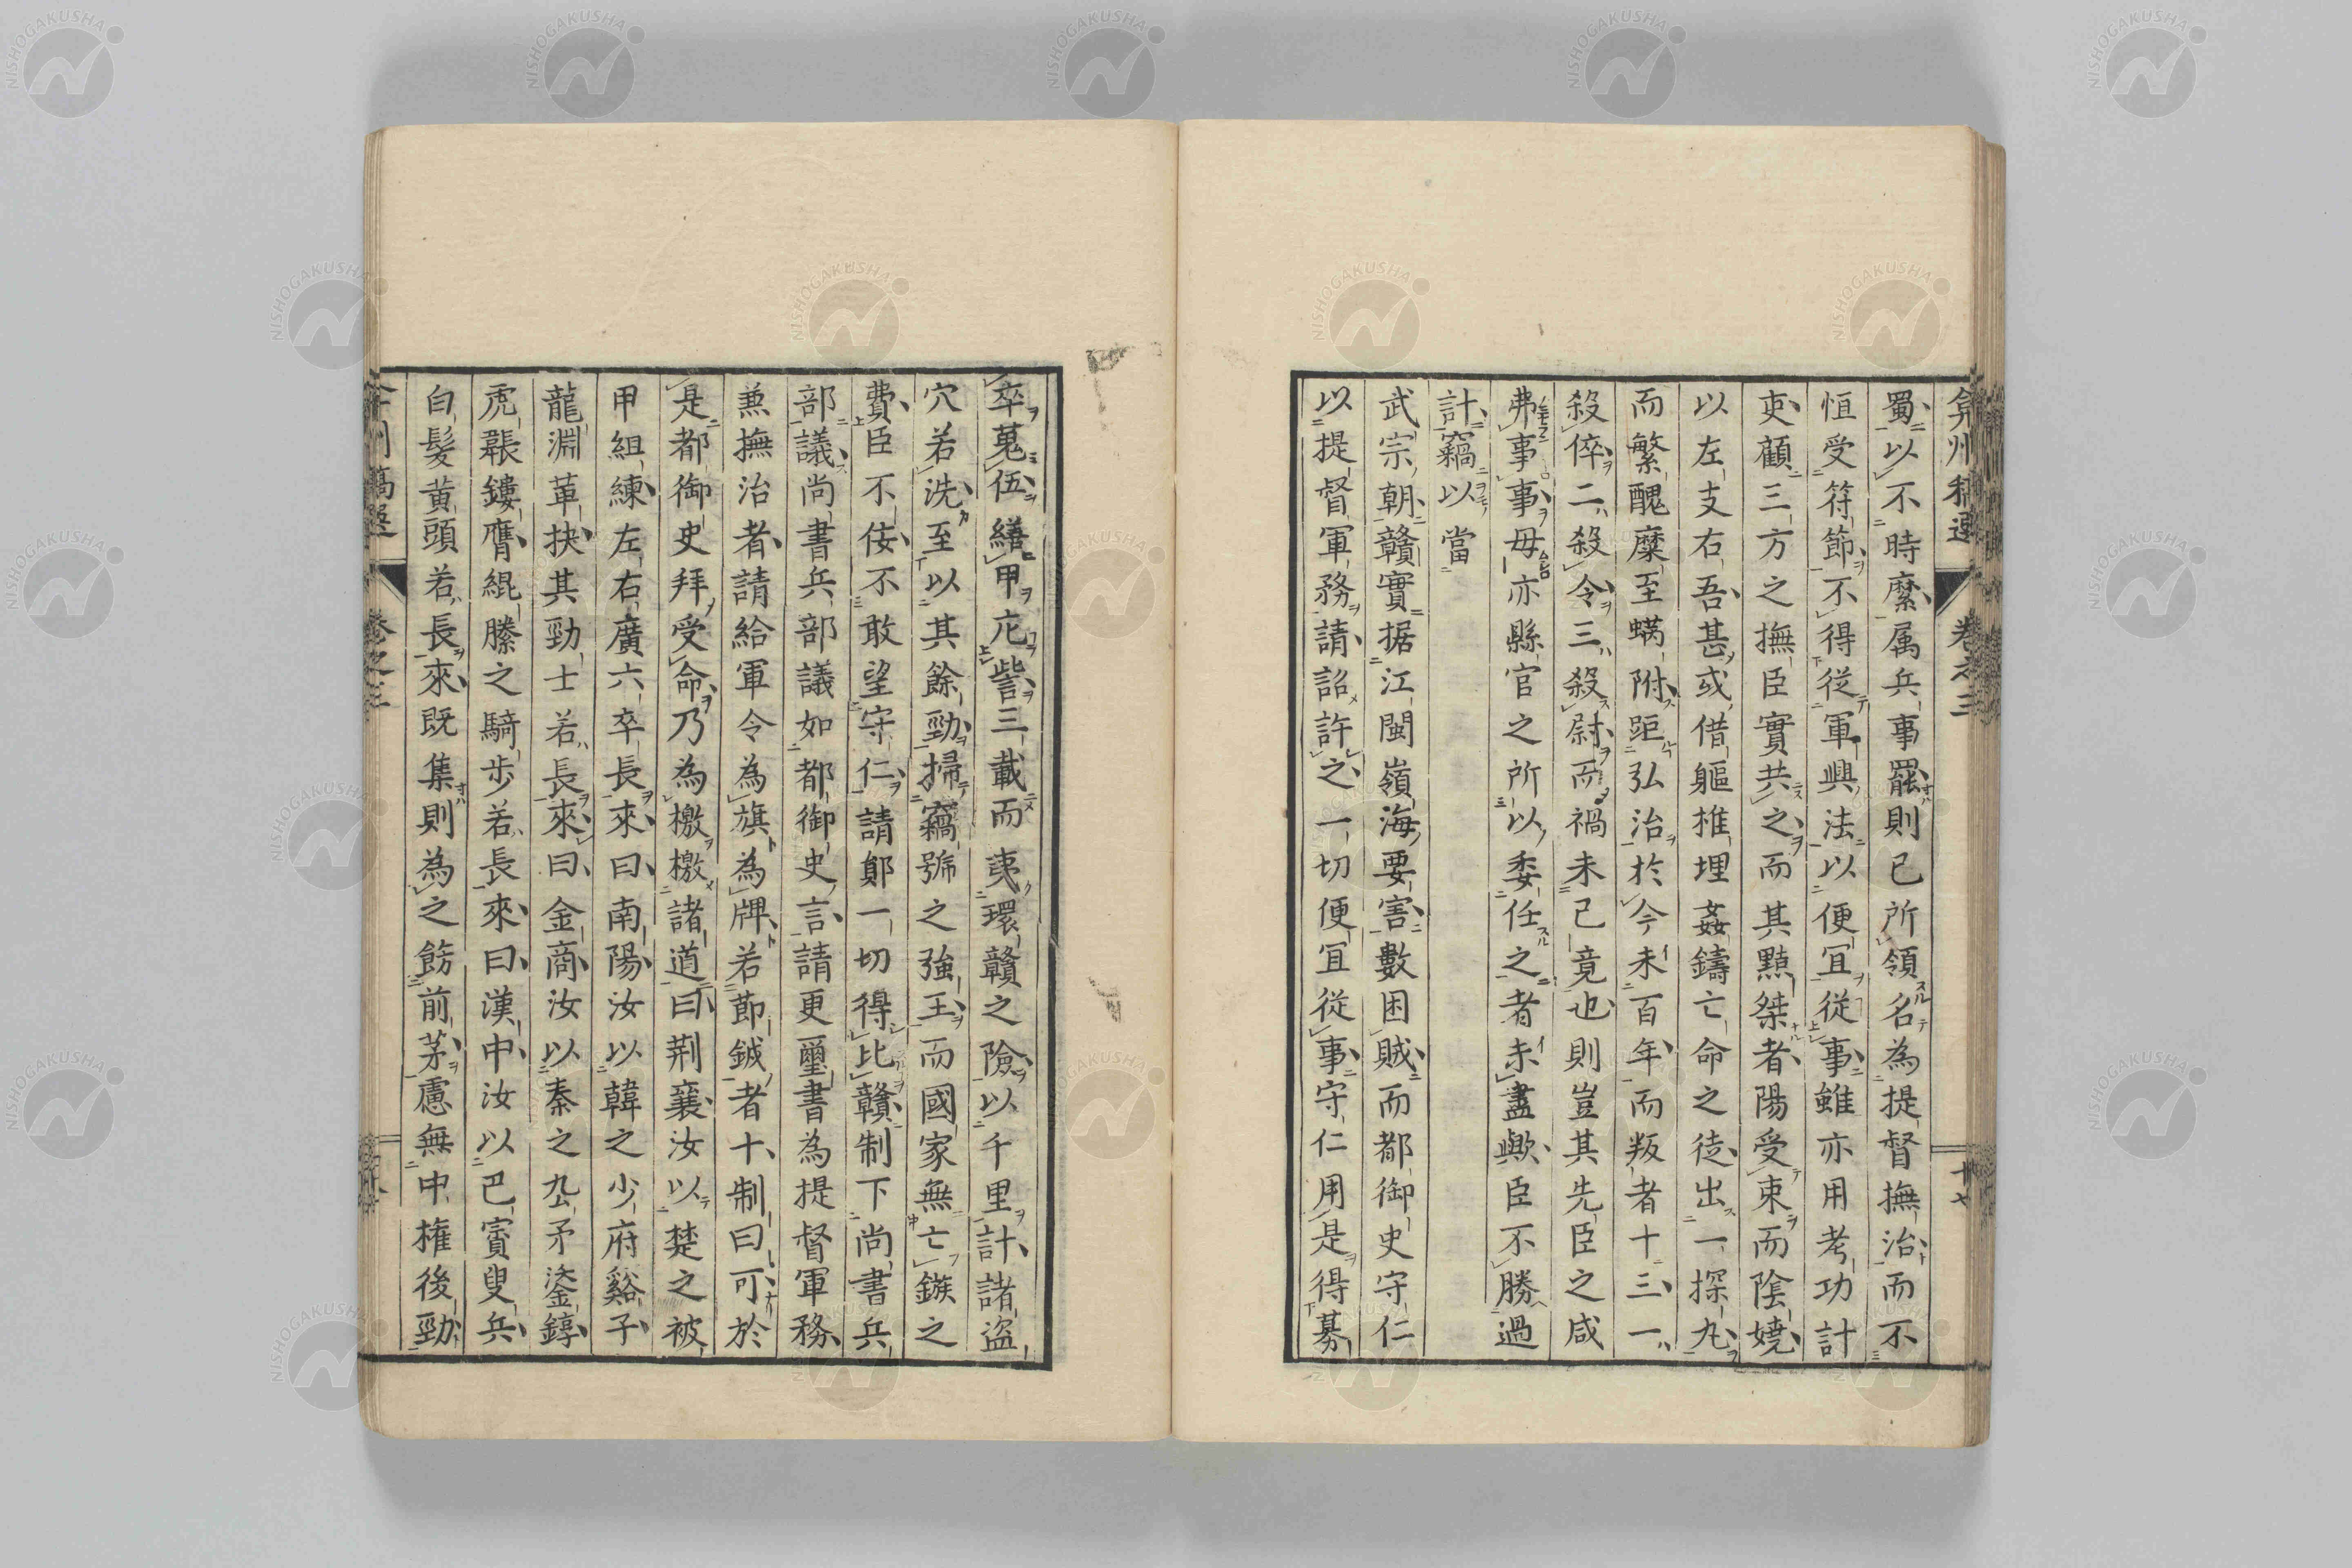 弇州稿選 卷之三 十七
蜀以不時糜属兵事罷則已所領名為提督撫治而不
恒受符節不得從軍興法以便冝從事雖亦用考功計
吏顧三方之撫臣實共之而其黠桀者陽受束而陰嬈
以左支右吾甚或借軀椎埋姦鑄亡命之徒出一探九
而繁醜糜至螨附距弘治於今未百年而叛者十三一
殺倅二殺令三殺尉而禍未已竟也則豈其先臣之咸
弗事事毋亦縣官之所以委任之者未盡歟臣不勝過
計竊以當
武宗朝贛實据江閩嶺海要害數困賊而都御史守仁
以提督軍務請詔許之一切便冝從事守仁用是得募
卒蒐伍繕甲庀訾三載而夷環贛之險以千里計諸盜
穴若洗至以其餘勁掃竊號之強王而國家無亡鏃之
費臣不佞不敢望守仁請鄖一切得比贛制下尚書兵
部議尚書兵部議如都御史言請更璽書為提督軍務
兼撫治者請給軍令為旗為牌若節鉞者十制曰可於
是都御史拜受命乃為檄檄諸道曰荆襄汝以楚之被
甲組練左右廣六卒長來曰南陽汝以韓之少府谿子
龍淵革抉其勁士若長來曰金商汝以秦之厹矛鋈錞
虎韔鏤膺緄縢之騎步若長來曰漢中汝以巴賨叟兵
白髮黄頭若長來既集則為之飭前茅慮無中權後勁
卷之三